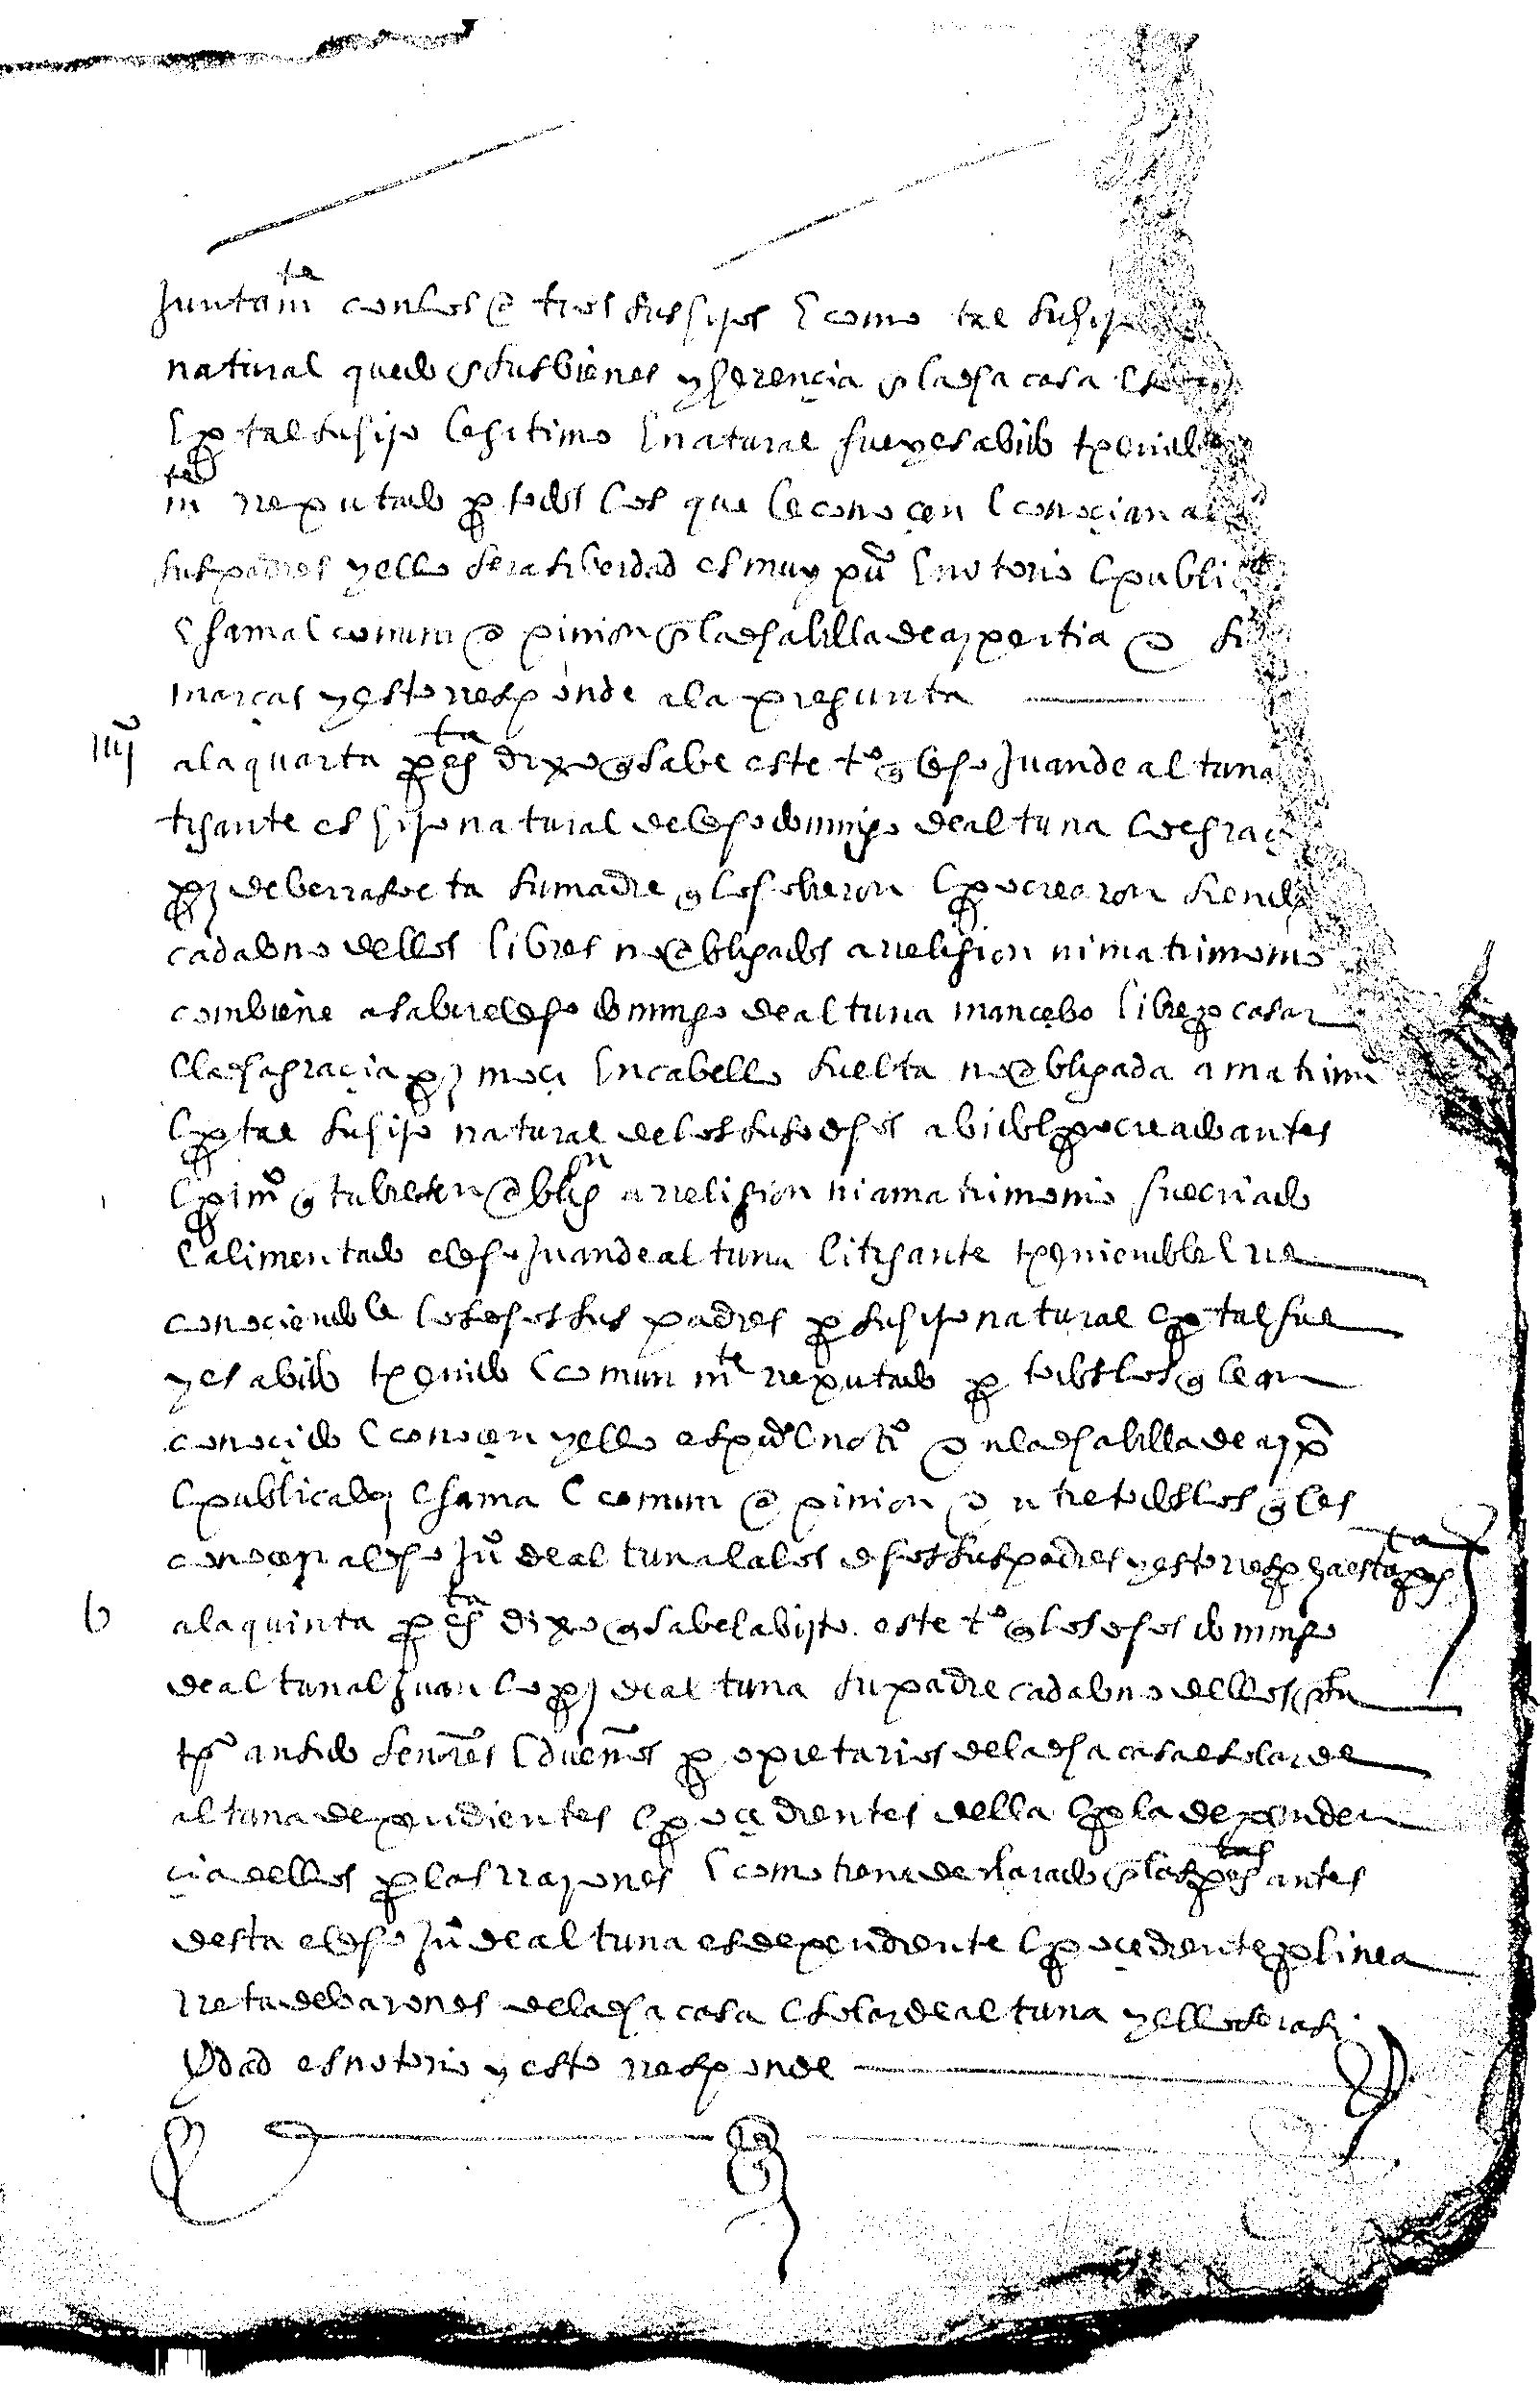 Juntamte con los otros sus hijos e como tal su hijo
natural quedo en sus bienes y herençia en la dha casa e
e por tal su hijo legitimo e natural fue y es abido thenido
mte rreputado por todos los que le conoçen e conoçian a
sus padres y ello sera si berdad es muy puco e notorio e publi
e fama e comun opinion en la dha billa de azpeitia e su
marcas y esto rresponde a la pregunta
iiijº a la quarta pregta dixo q sabe este tº q el dho Juan de altuna
tigante es hijo natural del dho domingo de altuna e de graçi
perez de berrasoeta su madre q los obieron e procrearon siendo
cada uno dellos libres no obligados a rreligion ni matrimonio
combiene a saber el dho domingo de altuna mançebo libre por casar
e la dha graçia perez moça en cabello suelta no obligada a matrimo
e por tal su hijo natural de los suso dhos abido e procreado antes
e primº q tubiesen obligon a rreligion ni a matrimonio fue criado
e alimentado el dho Juan de altuna litigante theniendole e rre
conoçiendole los dhos sus padres por su hijo natural e por tal fue
y es abido thenido e comunmte rreputado por todos los q le an
conoçido e conoçen y ello es puco e notrº en la dha billa de azpa
e publica boz e fama e comun opinion entre todos los q les
conoçen al dho Juº de altuna e a los dhos sus padres y esto rresponde a esta pregta
b a la quinta pregta dixo q sabe e a bisto este tº q los dhos domingo
de altuna e Juan lopez de altuna su padre cada uno dellos en su
tpo an sido señores e dueños propietarios de la dha casa e solar de
altuna dependientes e proçedientes della e por la dependen
çia dellos por las rrazones e como tiene declarado en las pregtas antes
desta el dho Juº de altuna es dependiente e proçediente por linea
rreta de barones de la dha casa e solar de altuna y ello sera si
verdad es notorio y esto rresponde